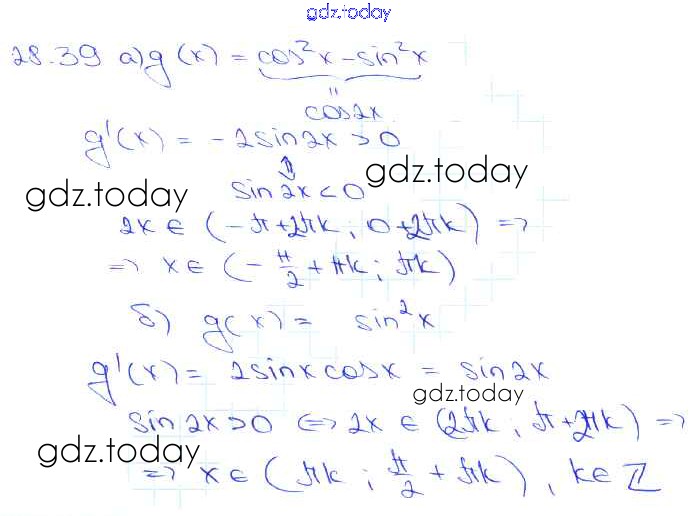 gdz.today
28.39 а) g(x) = cos²x - sin²x
"
cos2x
g'(x) = -2sin2x > 0
⇕
gdz.today
gdz.today
sin2x < 0
2x ∈ (-π+2πk; 0+2πk) ⇒
⇒ x ∈ (-π/2 + πk; πk)
б) g(x) = sin²x
g'(x) = 2sinxcosx = sin2x
gdz.today
sin2x > 0 ⇔ 2x ∈ (2πk; π+2πk) ⇒
gdz.today
⇒ x ∈ (πk; π/2 + πk), k ∈ ℤ